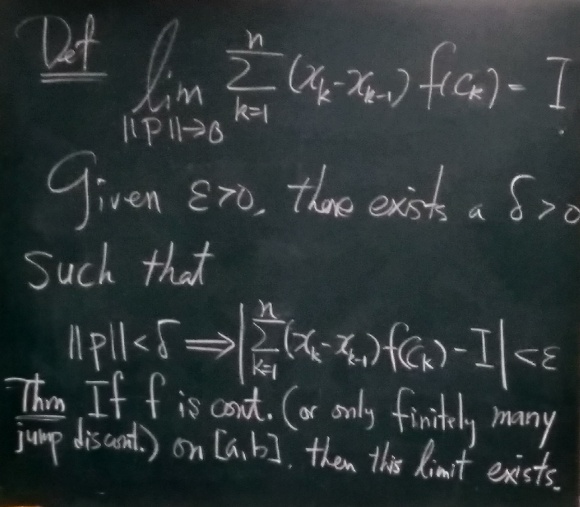 Def lim ||P||→0 n ∑ k=1 (x_k - x_{k-1}) f(c_k) = I
Given ε>0, there exists a δ>0
such that
||p||<δ ⟹ | n ∑ k=1 (x_k - x_{k-1}) f(c_k) - I | < ε
Thm If f is cont. (or only finitely many
jump discont.) on [a,b], then this limit exists.